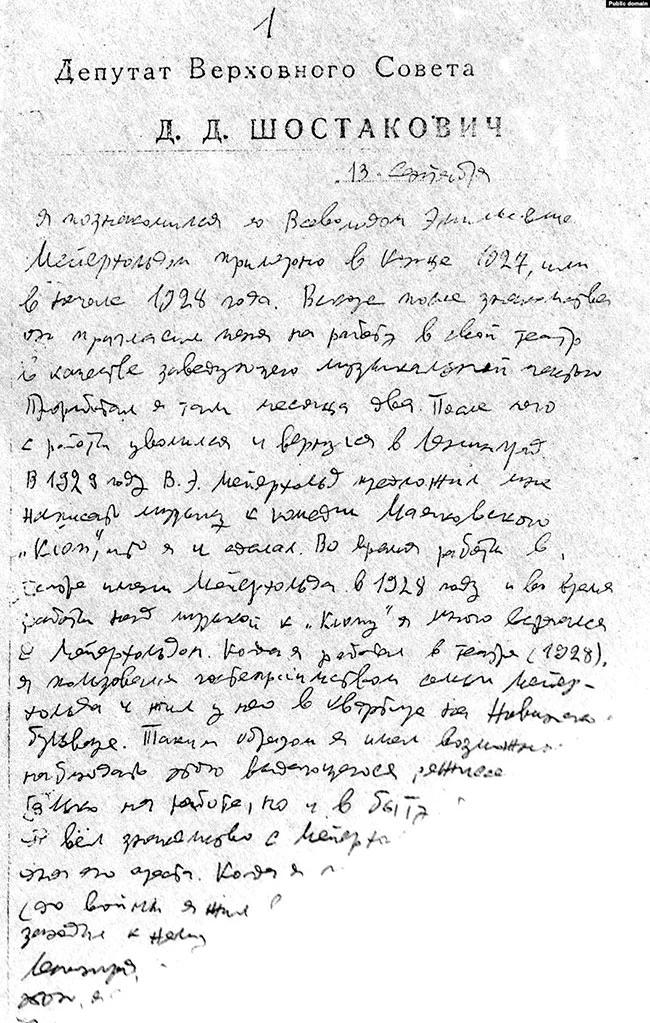 Public domain
1
Депутат Верховного Совета
Д. Д. ШОСТАКОВИЧ
13 сентября
Я познакомился со Всеволодом Эмильевичем
Мейерхольдом примерно в конце 1927, или
в начале 1928 года. Вскоре после знакомства
он пригласил меня на работу в свой театр
в качестве заведующего музыкальной частью
Проработал я там месяца два. После чего
с работы уволился и вернулся в Ленинград
В 1928 году В. Э. Мейерхольд предложил мне
написать музыку к комедии Маяковского
„Клоп", что я и сделал. Во время работы в
театре имени Мейерхольда в 1928 году и во время
работы над музыкой к „Клопу" я много встречался
с Мейерхольдом. Когда я работал в театре (1928),
я пользовался гостеприимством семьи Мейер-
хольда и жил у него в квартире на Новинском
бульваре. Таким образом я имел возможн
наблюдать этого выдающегося режиссе
только на работе, но и в быту
Я вёл знакомство с Мейерхо
его ареста. Когда я
(до войны я жил в
заходил к нему
Ленинград,
этом, я